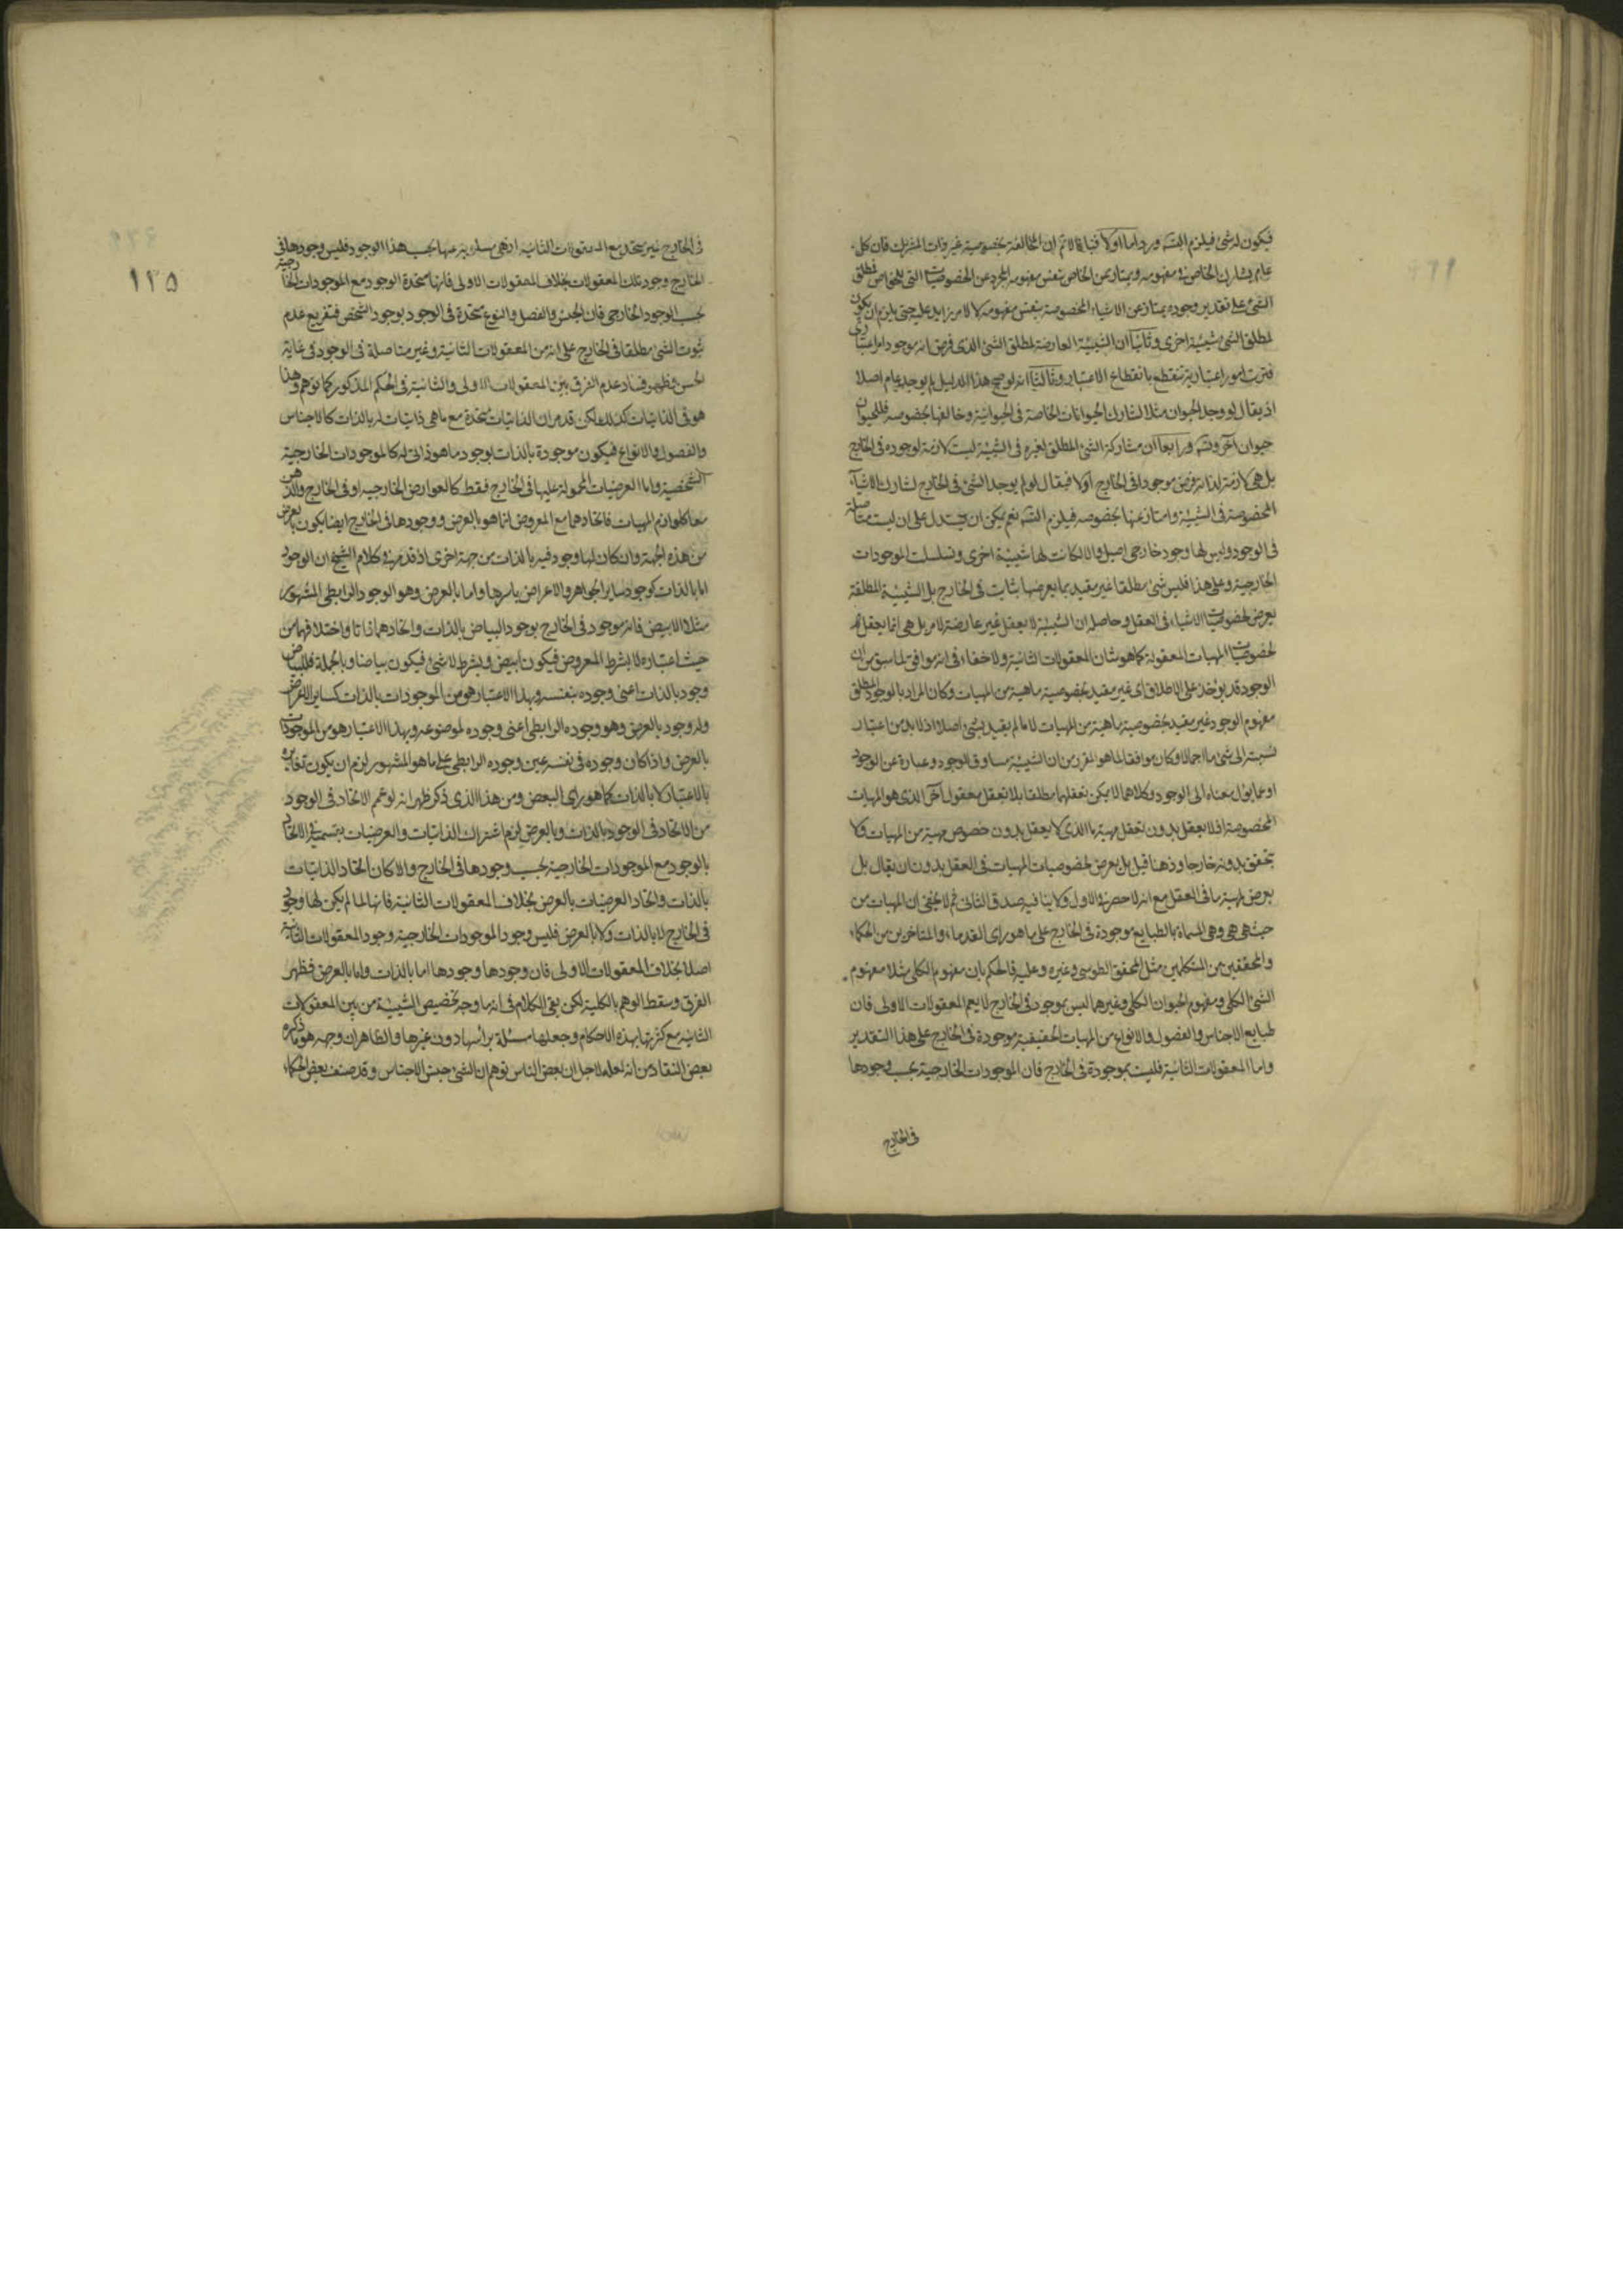 فيكون له شئ فيلزم التسـ ورد اما اولا فبانا لا نم ان المخالفة بخصوصية غير ذات المشترك فان كل
عام يشارك الخاص في مفهومه ويمتاز عن الخاص بنفس مفهومه المجرد عن الخصوصيات التي للخاص فمطلق
الشئ على تقدير وجوده يمتاز عن الاشياء المخصوصة بنفس مفهومه لا لامر زايد عليه حتى يلزم ان يكون
لمطلق الشئ شيئية اخرى وثانيا ان الشيئية العارضة لمطلق الشئ الذى فرض انه موجود امر اعتبارى
فترتب امور اعتبارية تنقطع بانقطاع الاعتبار وثالثا انه لو صح هذا الدليل لم يوجد عام اصلا
اذ يقال لو وجد الحيوان مثلا لشارك الحيوانات الخاصة فى الحيوانية وخالفها بخصوصه فللحيوان
حيوان آخر وتسـ ورابعا ان مشاركة الشئ المطلق لغيره فى الشيئية ليست لازمة لوجوده فى الخارج
بل هى لازمة لذاته فرض موجودا فى الخارج اولا فيقال لو لم يوجد الشئ فى الخارج لشارك الاشياء
المخصوصة فى الشيئية وامتاز عنها بخصوصه فيلزم التسـ نعم يمكن ان يستدل على ان ليست متاصلة
فى الوجود وليس لها وجود خارجى اصيل والا لكانت لها شيئية اخرى وتسلسلت الموجودات
الخارجية وعلى هذا فليس شئ مطلقا غير مقيد بما يعرضها بثابت فى الخارج بل الشيئية المطلقة
يعرض لخصوصيات الاشياء فى العقل وحاصله ان الشيئية لا يعقل غير عارضة لامر بل هى انما يعقل
لخصوصيات المهيات المعقولة كما هو شان المعقولات الثانية ولا خفاء فى انه موافق لما سبق من ان
الوجود قد يؤخذ على الاطلاق اى غير مقيد بخصوصية ماهية من المهيات وكان المراد بالوجود المطلق
مفهوم الوجود غير مقيد بخصوصية ماهية من المهيات لا ما لم يقيد بشئ اصلا اذ لا بد من اعتبار
نسبته الى شئ ما اجمالا وكان موافقا لما هو المقرر من ان الشيئية مساوق الوجود وعبارة عن الوجود
او عما يؤل معناه الى الوجود وكلاهما لا يمكن تعقلهما مطلقا بلا تعقل معقول آخر الذى هو المهيات
المخصوصة فلا يعقل بدون تعقل مهية ما الذى لا يعقل بدون خصوص مهية من المهيات ولا
تحقق بدونه خارجا وذهنا قيل بل يعرض لخصوصيات المهيات فى العقل بدون ان يقال بل
يعرض لمهية ما فى العقل مع انه لا حصر فى الاول ولا ينافيه صدق الثانى ثم لا يخفى ان المهيات من
حيث هى هى وهى المسماة بالطبايع موجودة فى الخارج على ما هو راى القدماء والمتاخرين من الحكماء
والمحققين من المتكلمين مثل المحقق الطوسى وغيره وعليه فالحكم بان مفهوم الكلى مثلا مفهوم
الشئ الكلى ومفهوم الحيوان الكلى وغيرهما ليس بموجود فى الخارج لا يعم المعقولات الاولى فان
طبايع الاجناس والفصول والانواع من المهيات الحقيقية موجودة فى الخارج على هذا التقدير
واما المعقولات الثانية فليست بموجودة فى الخارج فان الموجودات الخارجية بحسب وجودها
فى الخارج
١٢٥
فى الخارج غير متحد مع المعقولات الثانية اذ هى مسلوبة عنها بحسب هذا الوجود فليس وجودها فى
الخارج وجود تلك المعقولات بخلاف المعقولات الاولى فانها متحدة الوجود مع الموجودات الخارجية
بحسب الوجود الخارجى فان الجنس والفصل والنوع متحدة فى الوجود بوجود الشخص فتفريع عدم
ثبوت الشئ مطلقا فى الخارج على انه من المعقولات الثانية وغير متاصلة فى الوجود فى غاية
الحسن وظهر فساد عدم الفرق بين المعقولات الاولى والثانية فى الحكم المذكور كما توهم وهذا
هو فى الذاتيات كذلك لكن قد مر ان الذاتيات متحدة مع ما هى ذاتيات له بالذات كالاجناس
والفصول والانواع فيكون موجودة بالذات بوجود ما هو ذاتى له كالموجودات الخارجية
الشخصية واما العرضيات المحمولة عليها فى الخارج فقط كالعوارض الخارجية او فى الخارج والذهن
معا كلوازم المهيات فاتحادهما مع المعروض انما هو بالعرض ووجودها فى الخارج ايضا يكون بالعرض
من هذه الجهة وان كان لها وجود فيه بالذات من جهة اخرى اذ قد مر فى كلام الشيخ ان الوجود
اما بالذات كوجود ساير الجواهر والاعراض باسرها واما بالعرض وهو الوجود الرابطى المشهور
مثلا الابيض فانه موجود فى الخارج بوجود البياض بالذات واتحادهما ذاتا واختلافهما من
حيث اعتباره لا بشرط المعروض فيكون ابيض وبشرط لا شئ فيكون بياضا وبالجملة فللبياض
وجود بالذات اعنى وجوده بنفسه وبهذا الاعتبار هو من الموجودات بالذات كساير الاعراض
وله وجود بالعرض وهو وجوده الرابطى اعنى وجوده لموضوعه وبهذا الاعتبار هو من الموجودات
بالعرض واذا كان وجوده فى نفسه عين وجوده الرابطى على ما هو المشهور لزم ان يكون تغايره
بالاعتبار لا بالذات كما هو راى البعض ومن هذا الذى ذكر ظهر انه لو عمم الاتحاد فى الوجود
من الاتحاد فى الوجود بالذات وبالعرض لزم اشتراك الذاتيات والعرضيات بقسميه فى الاتحاد
بالوجود مع الموجودات الخارجية بحسب وجودها فى الخارج والا كان اتحاد الذاتيات
بالذات واتحاد العرضيات بالعرض بخلاف المعقولات الثانية فانها لما لم يكن لها وجود
فى الخارج لا بالذات ولا بالعرض فليس وجود الموجودات الخارجية وجود المعقولات الثانية
اصلا بخلاف المعقولات الاولى فان وجودها وجودها اما بالذات واما بالعرض فظهر
الفرق وسقط الوهم بالكلية لكن بقى الكلام فى انه ما وجه تخصيص الشيئية من بين المعقولات
الثانية مع كثرتها بهذه الاحكام وجعلها مسئلة برأسها دون غيرها والظاهر ان وجهه هو ما ذكره
بعض النقاد من انه لعله لاجل ان بعض الناس توهم ان الشئ جنس الاجناس وقد صنف بعض الحكماء